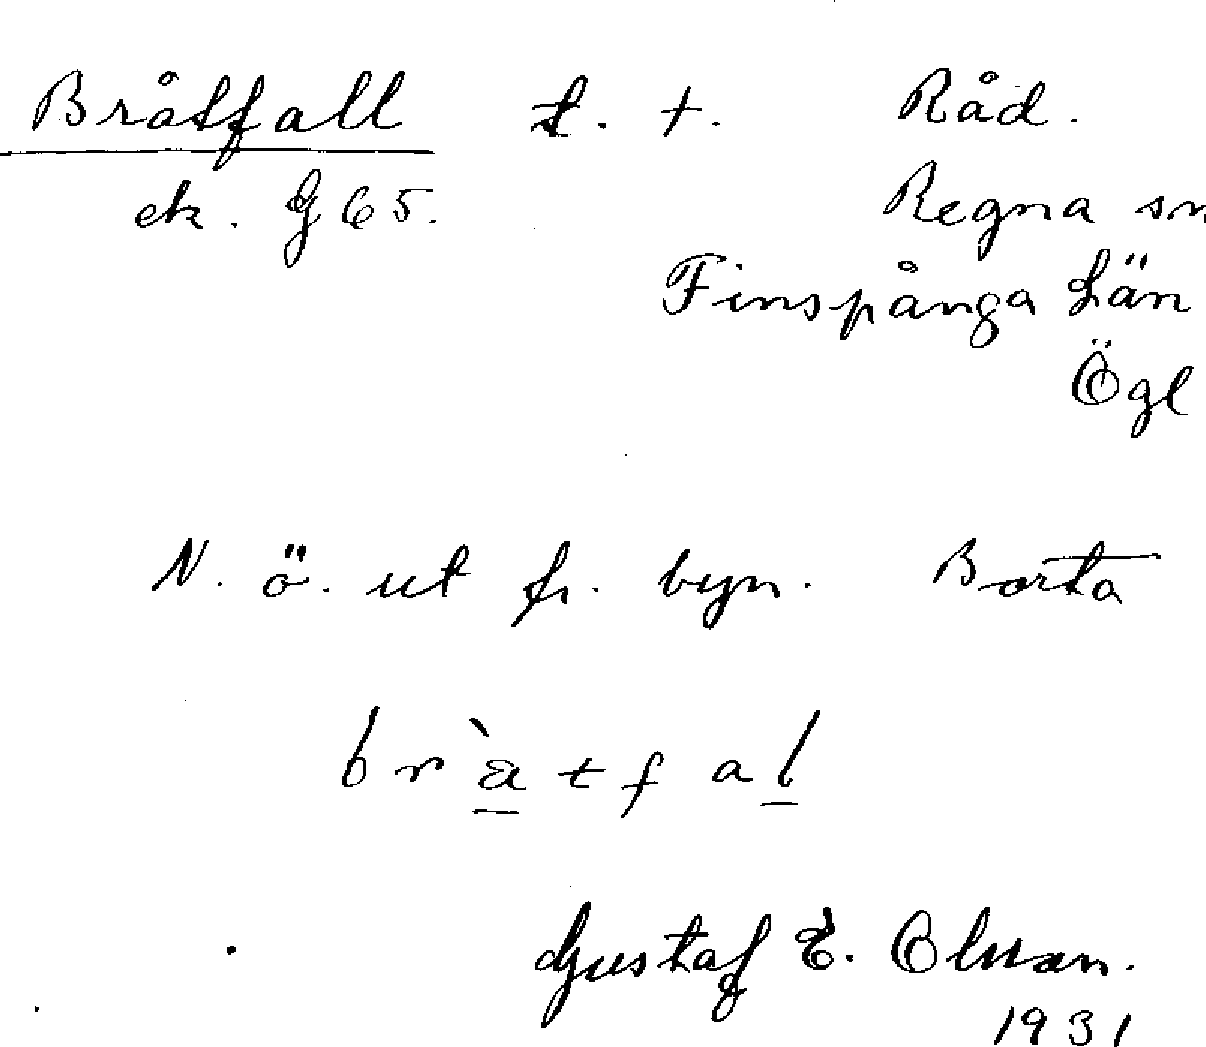 Bråtfall t. +. Råd.
ek. G 65. Regna sn
Finspånga län
Ögl
N. ö. ut fr. byn. Borta
bràtfal
Gustaf E. Olsson.
1931